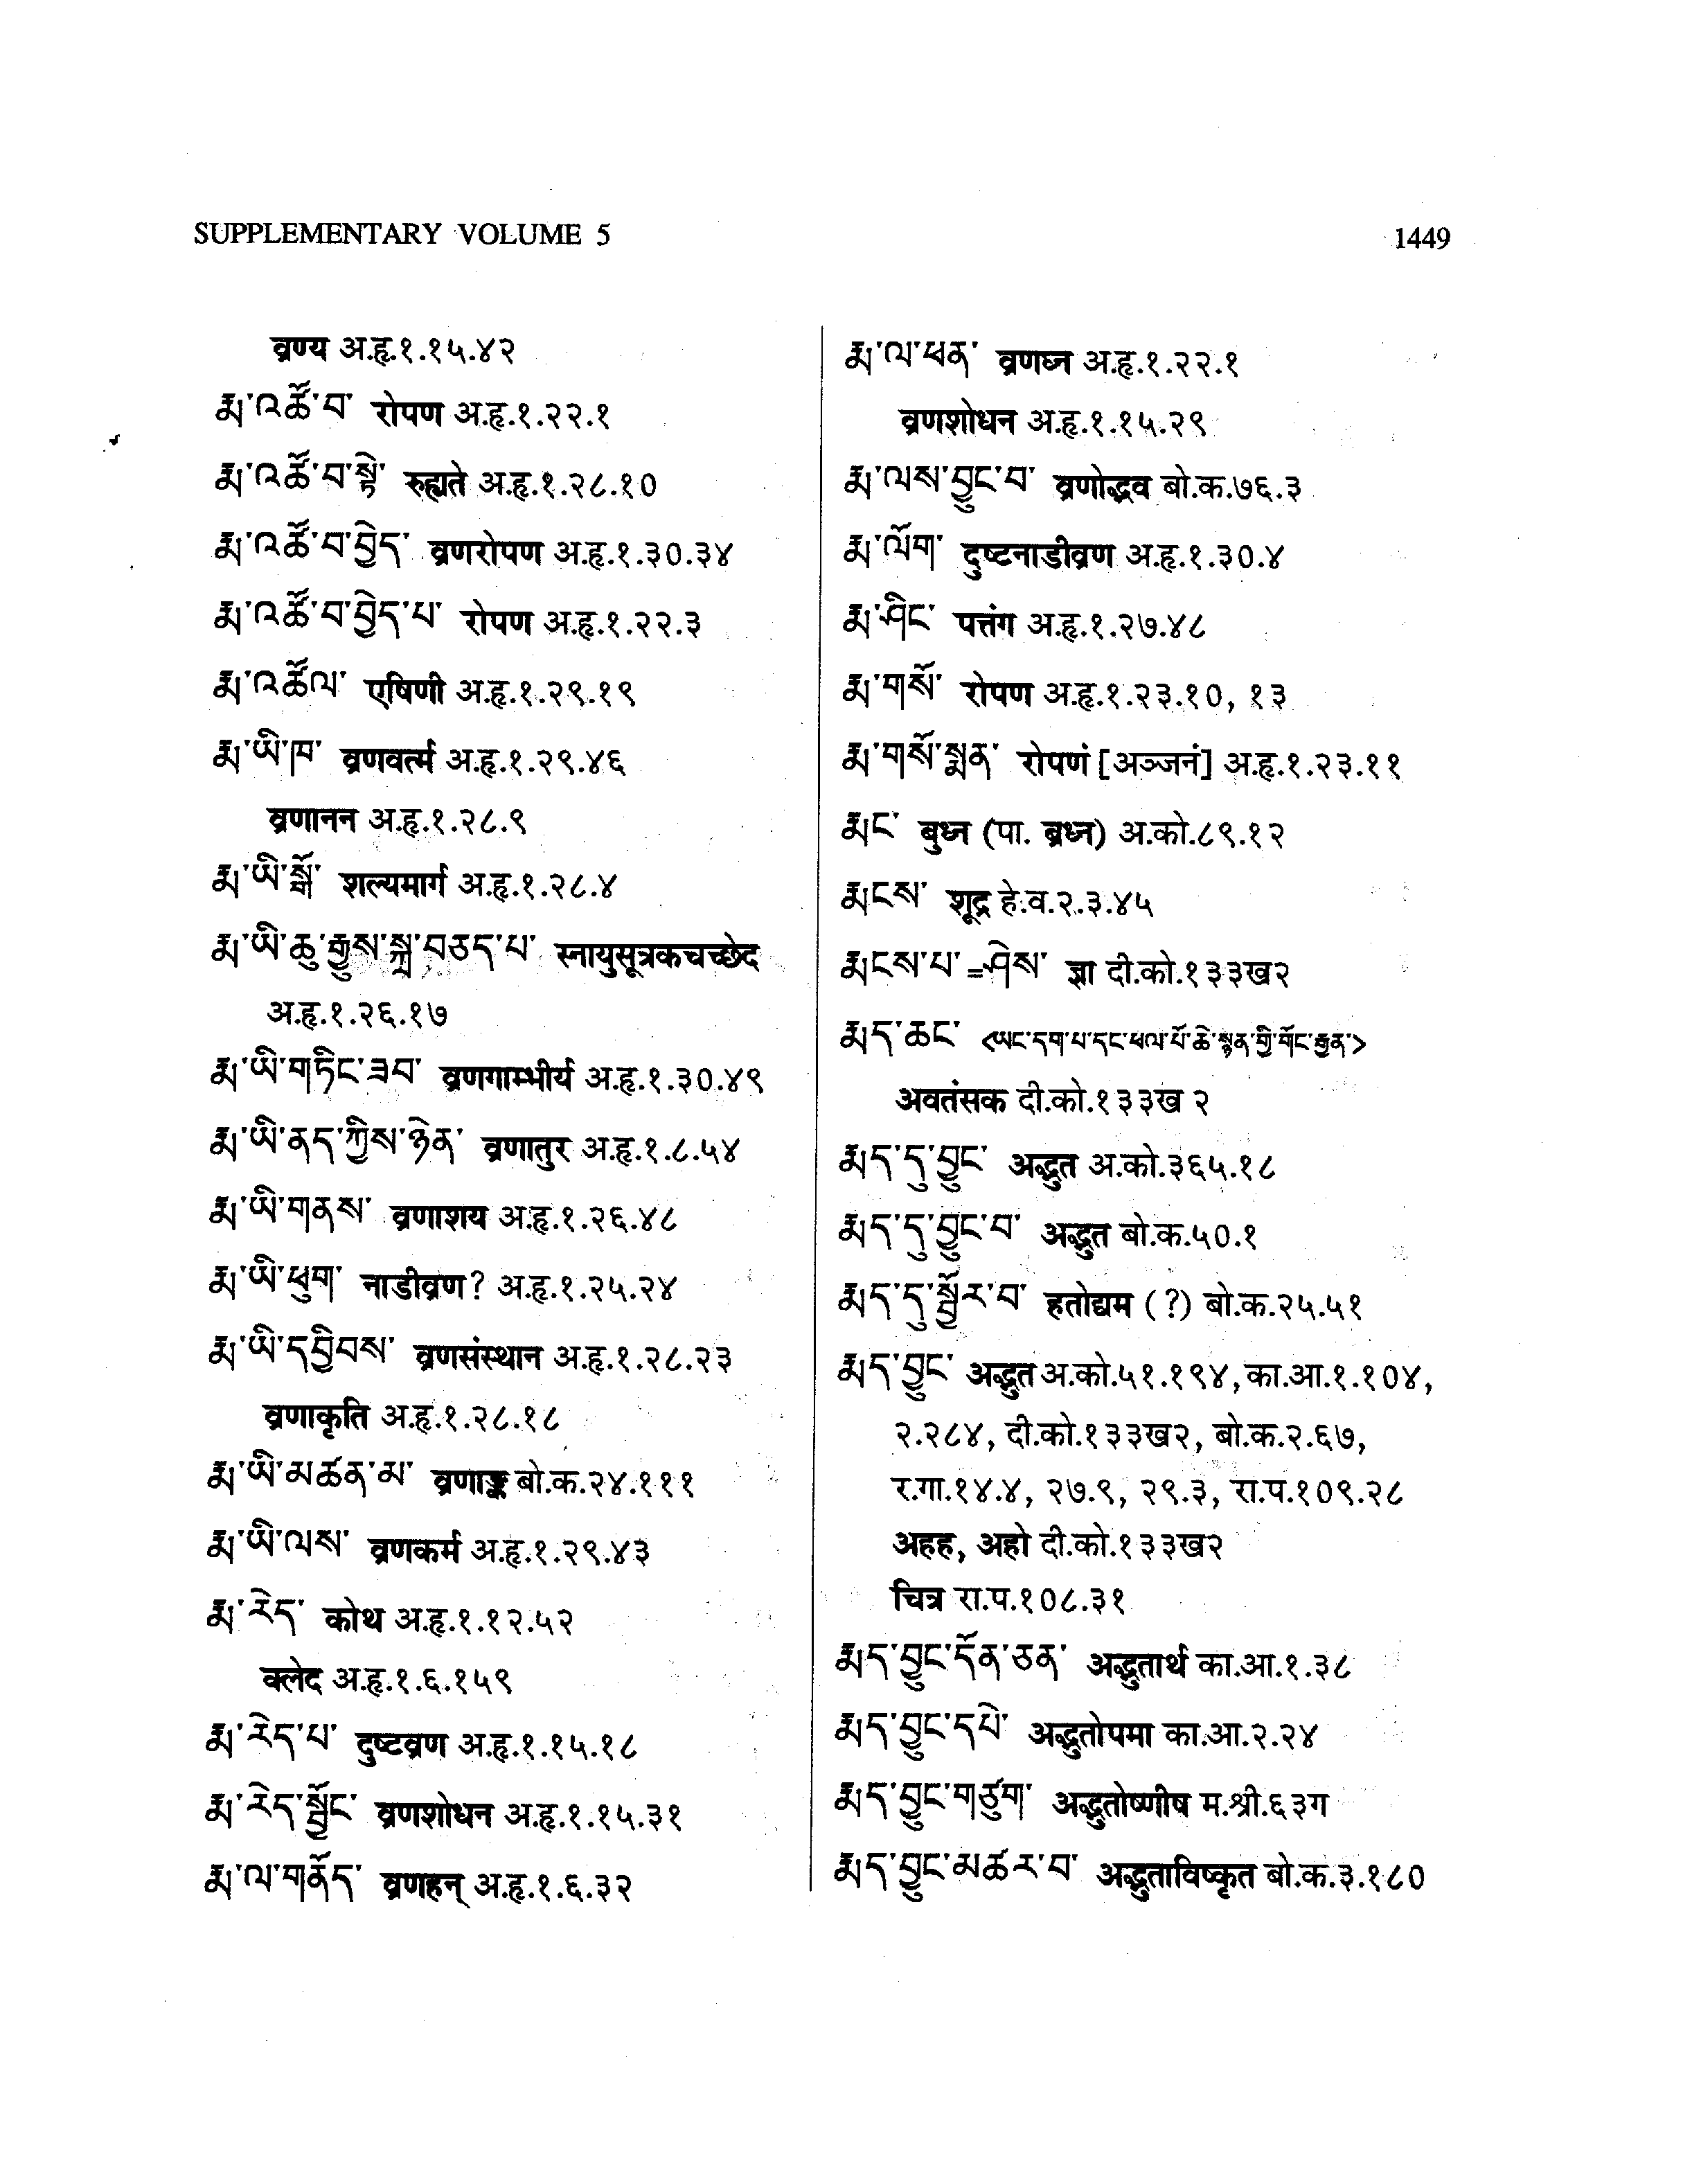 SUPPLEMENTARY VOLUME 5
1449
व्रण्य अ.हृ.१.१५.४२
རྨ་འཚོ་བ་ रोपण अ.हृ.१.२२.१
རྨ་འཚོ་བ་སྟེ་ रुह्यते अ.हृ.१.२८.१०
རྨ་འཚོ་བ་བྱེད་ व्रणरोपण अ.हृ.१.३०.३४
རྨ་འཚོ་བ་བྱེད་པ་ रोपण अ.हृ.१.२२.३
རྨ་འཚོལ་ एषिणी अ.हृ.१.२९.१९
རྨ་ཡི་ཁ་ व्रणवर्त्म अ.हृ.१.२९.४६
व्रणानन अ.हृ.१.२८.९
རྨ་ཡི་སྒོ་ शल्यमार्ग अ.हृ.१.२८.४
རྨ་ཡི་ཆུ་རྒྱུས་སྐྲ་བཅད་པ་ स्नायुसूत्रकचच्छेद
अ.हृ.१.२६.१७
རྨ་ཡི་གཏིང་ཟབ་ व्रणगाम्भीर्य अ.हृ.१.३०.४९
རྨ་ཡི་ནད་ཀྱིས་ཉེན་ व्रणातुर अ.हृ.१.८.५४
རྨ་ཡི་གནས་ व्रणाशय अ.हृ.१.२६.४८
རྨ་ཡི་ཕུག་ नाडीव्रण? अ.हृ.१.२५.२४
རྨ་ཡི་དབྱིབས་ व्रणसंस्थान अ.हृ.१.२८.२३
व्रणाकृति अ.हृ.१.२८.१८
རྨ་ཡི་མཚན་མ་ व्रणाङ्क बो.क.२४.१११
རྨ་ཡི་ལས་ व्रणकर्म अ.हृ.१.२९.४३
རྨ་རེད་ कोथ अ.हृ.१.१२.५२
क्लेद अ.हृ.१.६.१५९
རྨ་རེད་པ་ दुष्टव्रण अ.हृ.१.१५.१८
རྨ་རེད་སྦྱོང་ व्रणशोधन अ.हृ.१.१५.३१
རྨ་ལ་གནོད་ व्रणहन् अ.हृ.१.६.३२
རྨ་ལ་ཕན་ व्रणघ्न अ.हृ.१.२२.१
व्रणशोधन अ.हृ.१.१५.२९
རྨ་ལས་བྱུང་བ་ व्रणोद्भव बो.क.७६.३
རྨ་ལོག་ दुष्टनाडीव्रण अ.हृ.१.३०.४
རྨ་ཤིང་ पत्तंग अ.हृ.१.२७.४८
རྨ་གསོ་ रोपण अ.हृ.१.२३.१०, १३
རྨ་གསོ་སྨན་ रोपणं [अञ्जनं] अ.हृ.१.२३.११
རྨང་ बुध्न (पा. ब्रध्न) अ.को.८९.१२
རྨངས་ शूद्र हे.व.२.३.४५
རྨངས་པ་=ཤེས་ ज्ञा दी.को.१३३ख२
རྨད་ཆང་ <ཡང་དག་པ་དང་ཕལ་པོ་ཆེ་སྙན་གྱི་གོང་རྒྱན་>
अवतंसक दी.को.१३३ख २
རྨད་དུ་བྱུང་ अद्भुत अ.को.३६५.१८
རྨད་དུ་བྱུང་བ་ अद्भुत बो.क.५०.१
རྨད་དུ་སྦྱོར་བ་ हतोद्यम (?) बो.क.२५.५१
རྨད་བྱུང་ अद्भुत अ.को.५१.१९४, का.आ.१.१०४,
२.२८४, दी.को.१३३ख२, बो.क.२.६७,
र.गा.१४.४, २७.९, २९.३, रा.प.१०९.२८
अहह, अहो दी.को.१३३ख२
चित्र रा.प.१०८.३१
རྨད་བྱུང་དོན་ཅན་ अद्भुतार्थ का.आ.१.३८
རྨད་བྱུང་དཔེ་ अद्भुतोपमा का.आ.२.२४
རྨད་བྱུང་གཙུག་ अद्भुतोष्णीष म.श्री.६३ग
རྨད་བྱུང་མཚར་བ་ अद्भुताविष्कृत बो.क.३.१८०